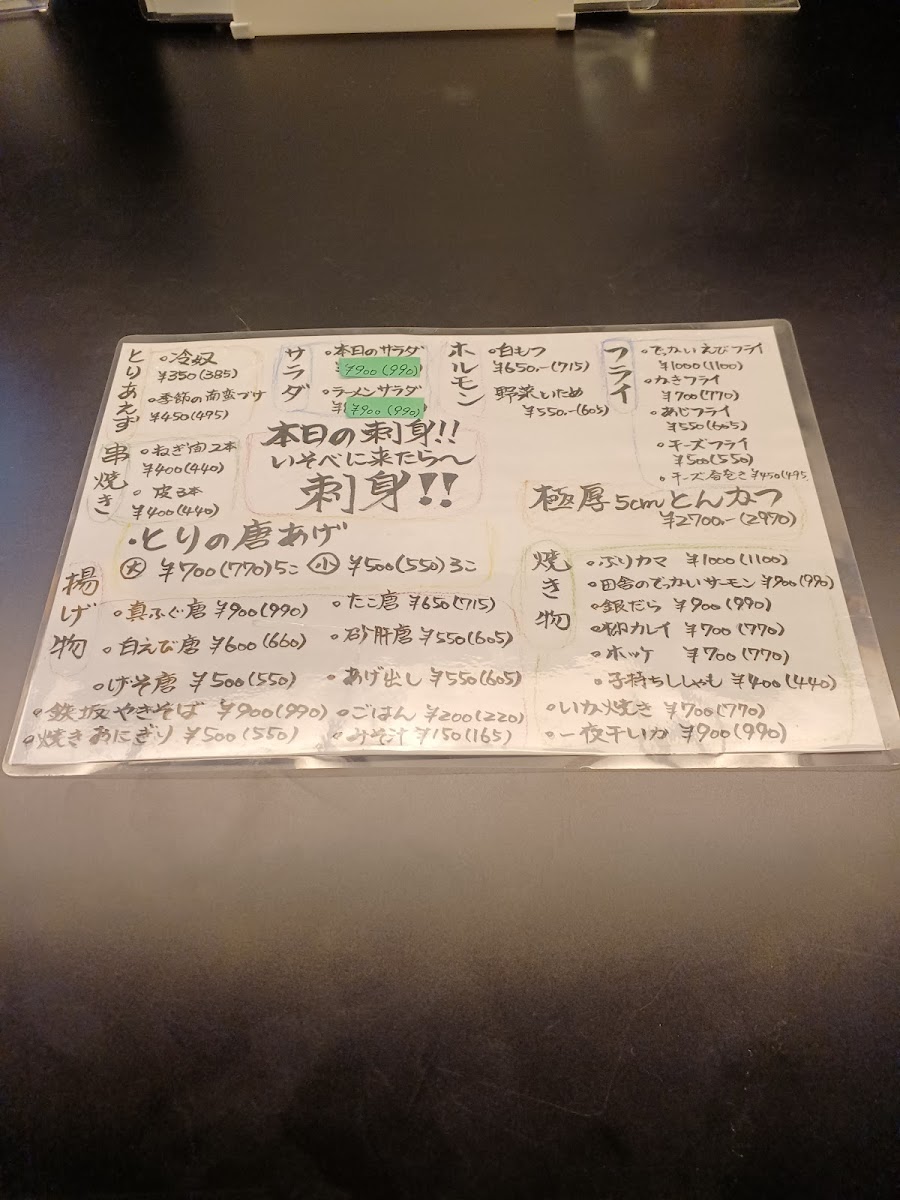 とりあえず
・冷奴
¥350(385)
・季節の南蛮づけ
¥450(495)
サラダ
・本日のサラダ
¥900(990)
・ラーメンサラダ
¥900(990)
ホルモン
・白もつ
¥650.-(715)
野菜いため
¥550.-(605)
フライ
・でっかいえびフライ
¥1000(1100)
・かきフライ
¥700(770)
・あじフライ
¥550(605)
・チーズフライ
¥500(550)
・チーズ春巻き¥450(495
串焼き
・ねぎ間2本
¥400(440)
・皮3本
¥400(440)
本日の刺身!!
いそべに来たら〜
刺身!!
極厚5cmとんかつ
¥2700.-(2970)
・とりの唐あげ
大 ¥700(770)5こ 小 ¥500(550)3こ
揚げ物
・真ふぐ唐 ¥900(990)
・たこ唐 ¥650(715)
・白えび唐 ¥600(660)
・砂肝唐 ¥550(605)
・げそ唐 ¥500(550)
・あげ出し ¥550(605)
・鉄板やきそば ¥900(990)
・ごはん ¥200(220)
・焼きおにぎり ¥500(550)
・みそ汁 ¥150(165)
焼き物
・ぶりカマ ¥1000(1100)
・田舎のでっかいサーモン ¥900(990)
・銀だら ¥900(990)
・柳カレイ ¥700(770)
・ホッケ ¥700(770)
・子持ちししゃも ¥400(440)
・いか焼き ¥700(770)
・一夜干いか ¥900(990)